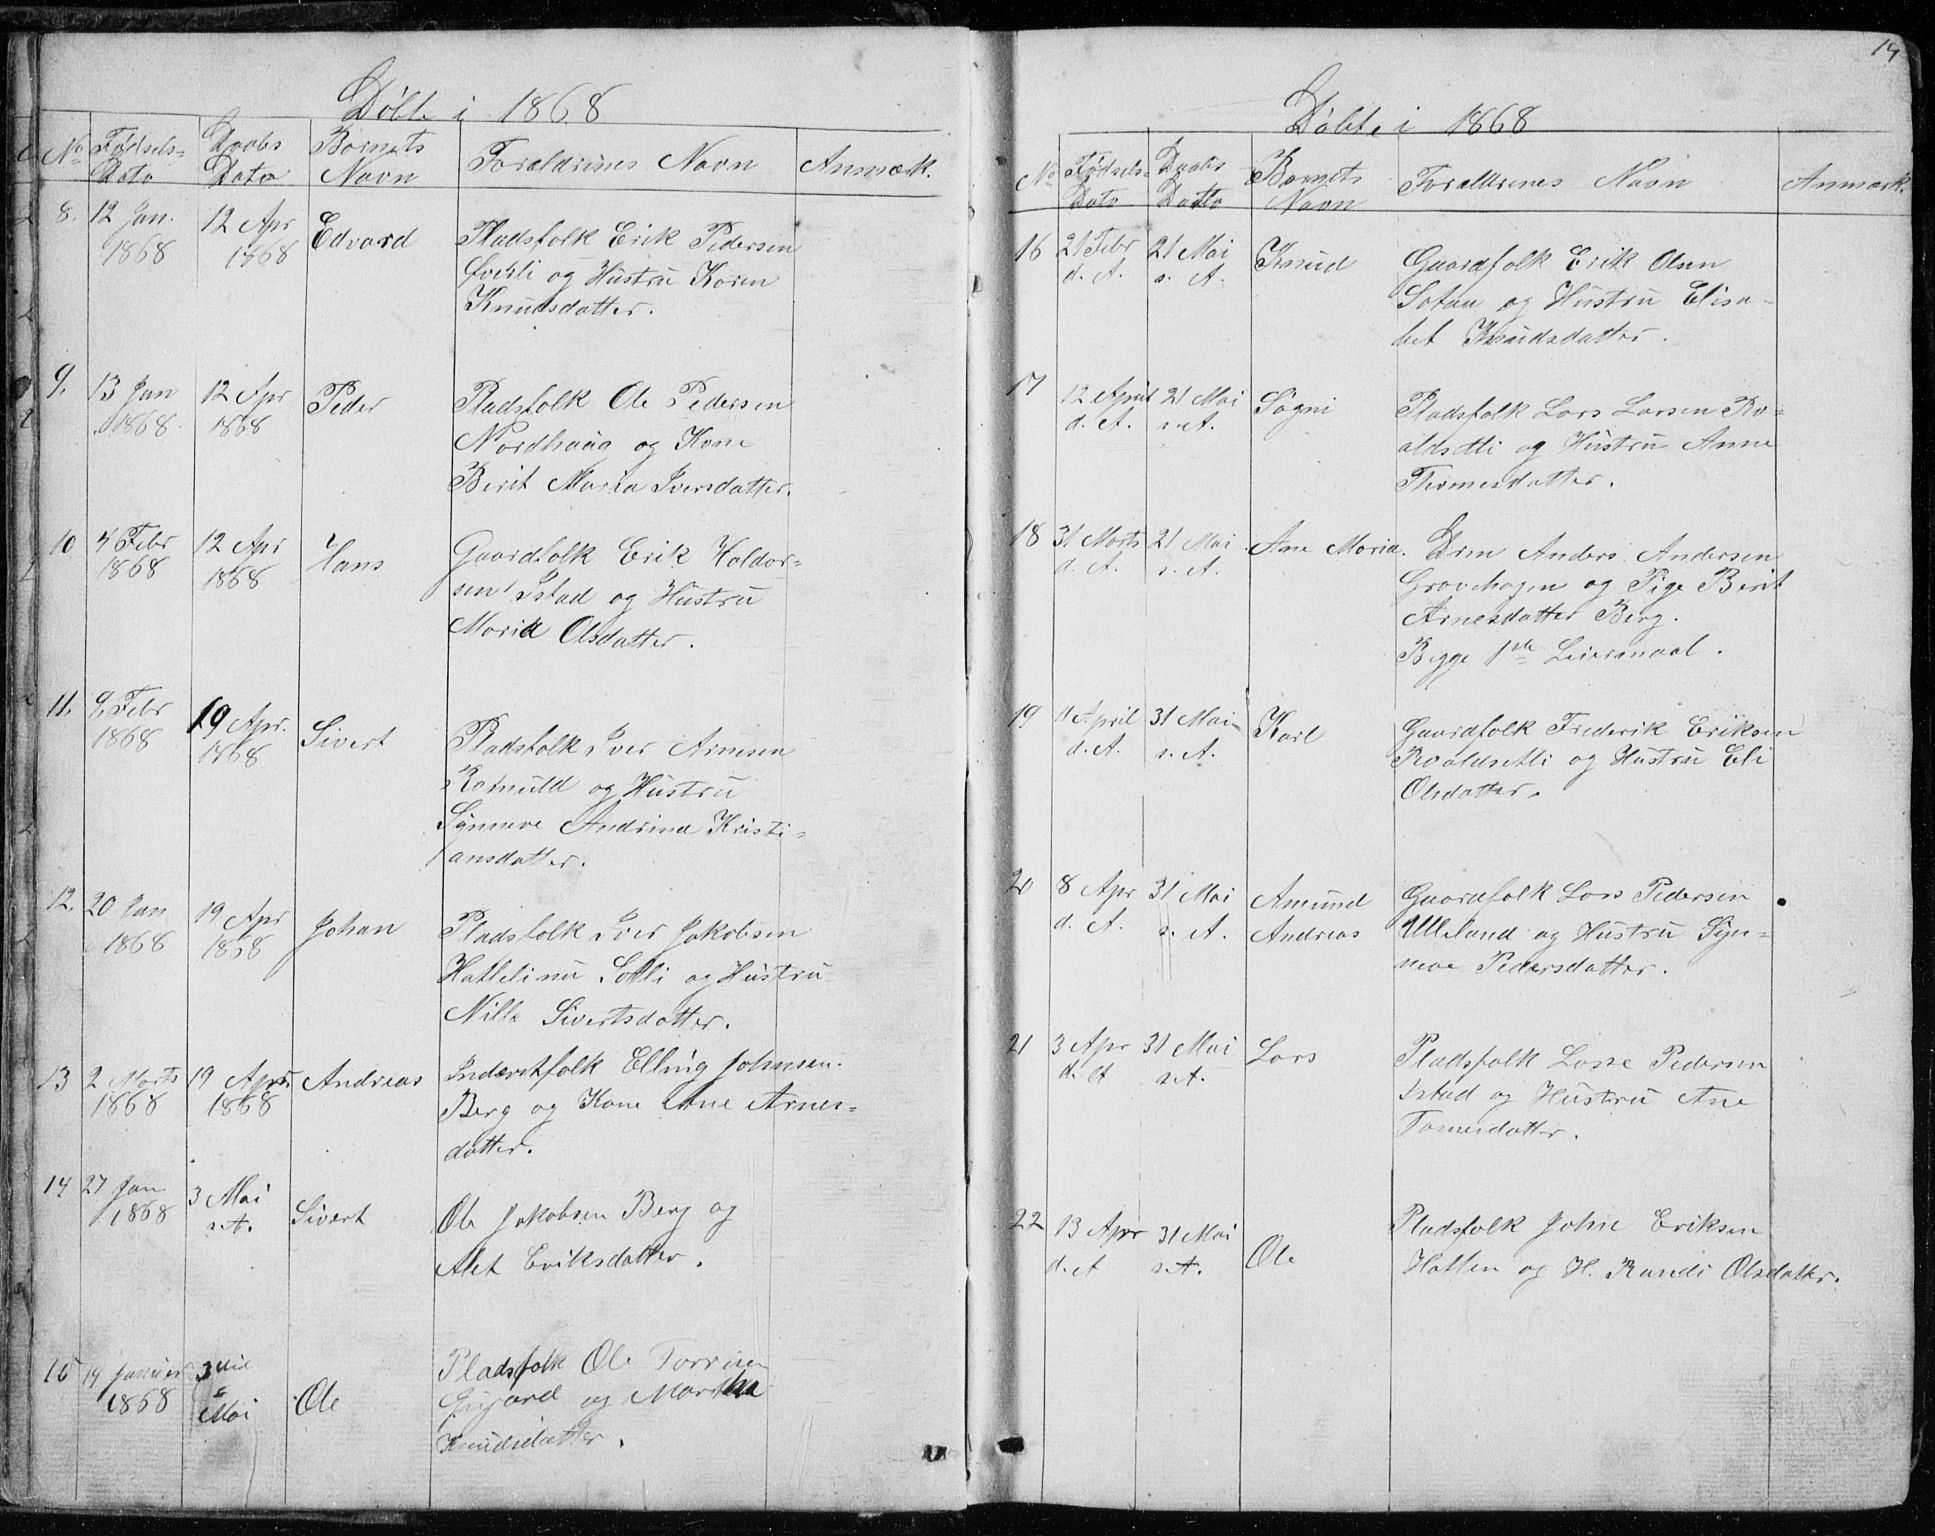 Døbte i 1868
No Fødsels= Daabs Barnets Forældrenes Navn Anmærk.
Dato Dato Navn
8. 12 Jan. 12 Apr Edvard Pladsfolk Erik Pedersen
1868 1868 og Hustru Karen
Knudsdatter.
9. 13 Jan 12 Apr Peder Pladsfolk Ole Pedersen
1868 1868 Nordhaug og Kone
Berit Maria Iversdatter.
10 4 Febr 12 Apr Hans Gaardfolk Erik Haldor=
1868 1868 sen Istad og Hustru
Maria Olsdatter.
11. 9 Febr 19 Apr. Sivert Pladsfolk Iver Arnesen
1868 1868 og Hustru
Synneve Andrina Kristi=
ansdatter.
12. 20 Jan 19 Apr Johan Pladsfolk Iver Jakobsen
1868 1868 Hatlelinu Solli og Hustru
Nille Sivertsdatter.
13 2 Marts 19 April Andreas Inderstfolk Elling Johnsen
1868 1868 Berg og Kone Ane Arnes=
datter.
14 27 Jan 3 Mai Sivert Ole Jakobsen Berg og
1868 s. A. Alet Eriksdatter.
15 19 Januar 3 Ole Pladsfolk Ole
1868 Mai og Martha
Knudsdatter.
19
Døbte i 1868
No Fødsels= Daabs Barnets Forældrenes Navn Anmærk.
Dato Datto Navn
16 21 Febr 21 Mai Knud Gaardfolk Erik Olsen
d. A. s. A. og Hustru Elisa=
bet Knudsdatter.
17 12 April 21 Mai Søgni Pladsfolk Lars Larsen Ro=
d. A. s. A. aldsetli og Hustru Anne
Thomesdatter.
18 31 Marts 21 Mai Ane Maria. Drm Anders Andersen
d. A. s. A. Grovehagen og Pige Berit
Arnesdatter Berg.
Begge 1ste Leiermaal.
19 11 April 31 Mai Karl Gaardfolk Frederik Eriksen
d. A. s. A. Roaldsetli og Hustru Eli
Olsdatter.
20 8 Apr 31 Mai Amund Gaardfolk Lars Pedersen
d. A. s. A. Andreas Ulleland og Hustru Syn=
neve Pedersdatter.
21 3 Apr 31 Mai Lars Pladsfolk Lasse Pedersen
d. A s. A. Istad og Hustru Ane
Tomesdatter.
22 13 Apr 31 Mai Ole Pladsfolk John Eriksen
d. A s. A. Hatlen og H. Randi Olsdatter.